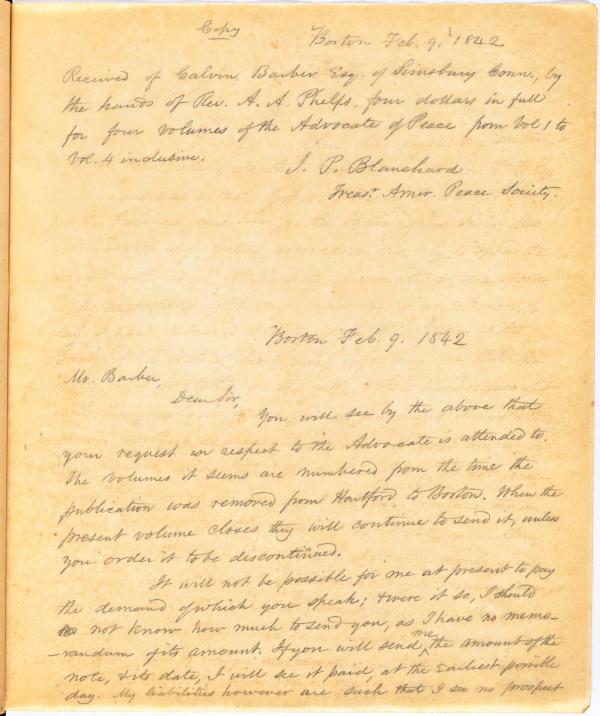 Copy
Boston Feb. 9. 1842
Received of Calvin Barber Esq. of Simsbury Conn., by
the hands of Rev. A. A. Phelps, four dollars in full
for four volumes of the Advocate of Peace from Vol 1 to
Vol. 4 inclusive.
J. P. Blanchard
Treasr. Amer. Peace Society.
Boston Feb. 9. 1842
Mr. Barber,
Dear Sir,
You will see by the above that
your request in respect to the Advocate is attended to.
The volumes it seems are numbered from the time the
publication was removed from Hartford to Boston. When the
present volume closes they will continue to send it, unless
you order it to be discontinued.
It will not be possible for me at present to pay
the demand of which you speak; & were it so, I should
not know how much to send you, as I have no memo-
-randum of its amount. If you will send me the amount of the
note, & its date, I will see it paid, at the earliest possible
day. My liabilities however are such that I see no prospect